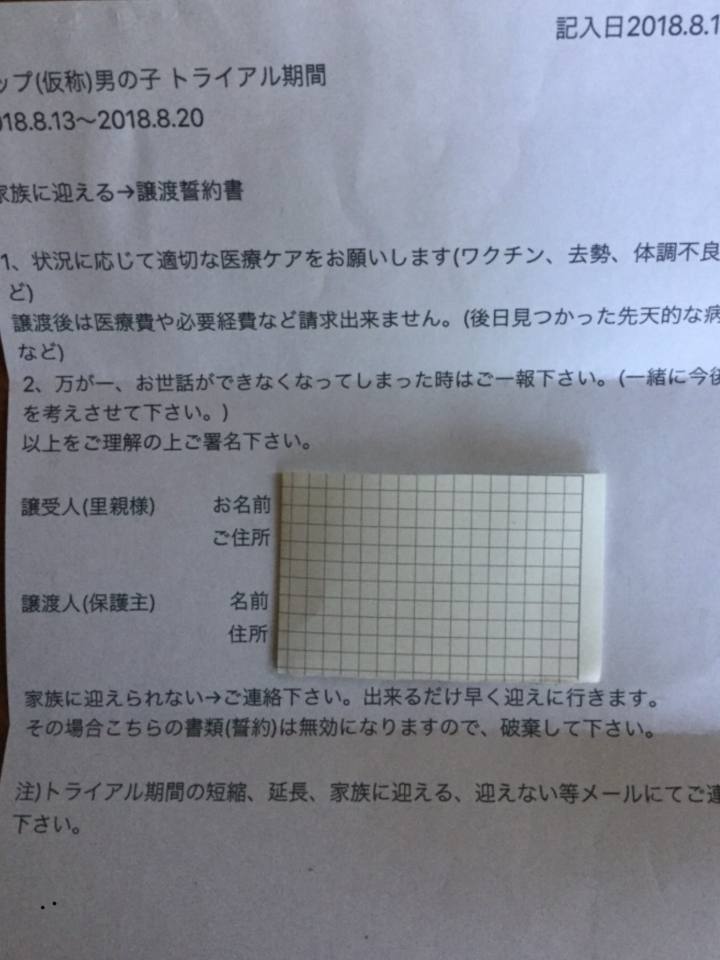 記入日2018.8.1
ップ(仮称)男の子 トライアル期間
018.8.13〜2018.8.20
家族に迎える→譲渡誓約書
1、状況に応じて適切な医療ケアをお願いします(ワクチン、去勢、体調不良
ど)
譲渡後は医療費や必要経費など請求出来ません。(後日見つかった先天的な病
など)
2、万が一、お世話ができなくなってしまった時はご一報下さい。(一緒に今後
を考えさせて下さい。)
以上をご理解の上ご署名下さい。
譲受人(里親様) お名前
ご住所
譲渡人(保護主) 名前
住所
家族に迎えられない→ご連絡下さい。出来るだけ早く迎えに行きます。
その場合こちらの書類(誓約)は無効になりますので、破棄して下さい。
注)トライアル期間の短縮、延長、家族に迎える、迎えない等メールにてご連
下さい。